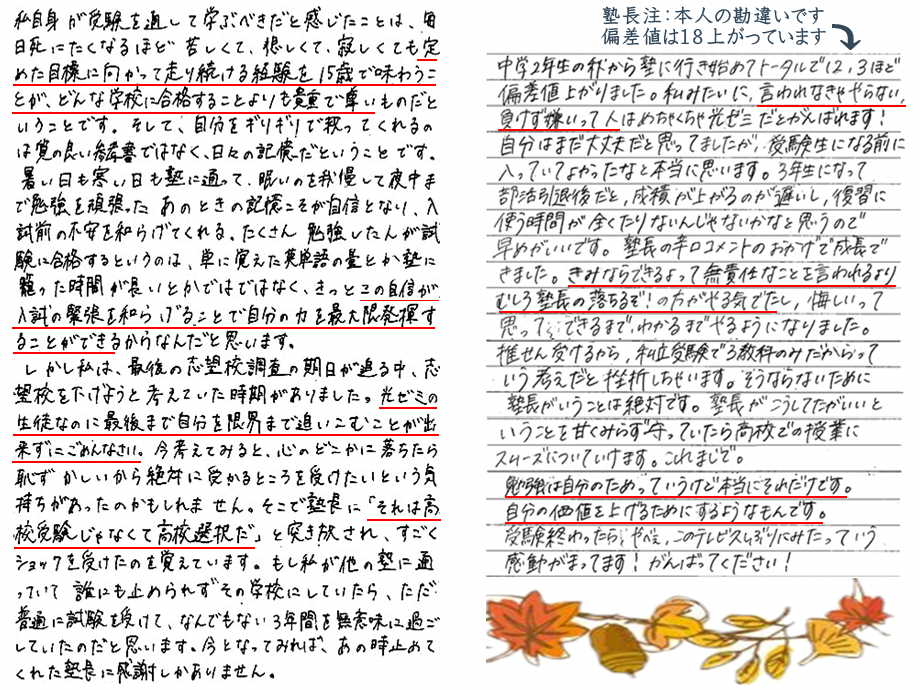 私自身が受験を通して学ぶべきだと感じたことは、毎
日死にたくなるほど苦しくて、悲しくて、寂しくても定
めた目標に向かって走り続ける経験を15歳で味わうこ
とが、どんな学校に合格することよりも貴重で尊いものだと
いうことです。そして、自分をギリギリで救ってくれるの
は質の良い参考書ではなく、日々の記憶だということです。
暑い日も寒い日も塾に通って、眠いのを我慢して夜中ま
で勉強を頑張ったあのときの記憶こそが自信となり、入
試前の不安を和らげてくれる。たくさん勉強したんが試
験に合格するというのは、単に覚えた英単語の量とか塾に
籠った時間が長いとかではではなく、きっとこの自信が
入試の緊張を和らげることで自分の力を最大限発揮す
ることができるからなんだと思います。
しかし私は、最後の志望校調査の期日が迫る中、志
望校を下げようと考えていた時期がありました。光ゼミの
生徒なのに最後まで自分を限界まで追いこむことが出
来ずにごめんなさい。今考えてみると、心のどこかに落ちたら
恥ずかしいから絶対に受かるところを受けたいという気
持ちがあったのかもしれません。そこで塾長に「それは高
校受験じゃなくて高校選択だ」と突き放され、すごく
ショックを受けたのを覚えています。もし私が他の塾に通
っていて誰にも止められずその学校にしていたら、ただ
普通に試験を受けて、なんでもない3年間を無意味に過ご
していたのだと思います。今となってみれば、あの時止めて
くれた塾長に感謝しかありません。
塾長注：本人の勘違いです
偏差値は18上がっています
中学2年生の秋から塾に行き始めてトータルで12,3ほど
偏差値上がりました。私みたいに、言われなきゃやらない、
負けず嫌いって人はめちゃくちゃ光ゼミだとがんばれます！
自分はまだ大丈夫だと思ってましたが、受験生になる前に
入っていてよかったなと本当に思います。3年生になって
部活引退後だと、成績が上がるのが遅いし、復習に
使う時間が全くたりないんじゃないかなと思うので
早めがいいです。塾長の辛口コメントのおかげで成長で
きました。きみならできるよって無責任なことを言われるより
むしろ塾長の落ちるぞ！の方がやる気でたし、悔しいって
思って、できるまで、わかるまでやるようになりました。
推せん受けるから、私立受験で3教科のみだからって
いう考えだと挫折しちゃいます。そうならないために
塾長がいうことは絶対です。塾長がこうしてたがいいと
いうことを甘くみらず守っていたら高校での授業に
スムーズについていけます。これまじで。
勉強は自分のためっていうけど本当にそれだけです。
自分の価値を上げるためにするようなもんです。
受験終わったら、やべぇ、このテレビ久しぶりにみたっていう
感動がまってます！がんばってください！